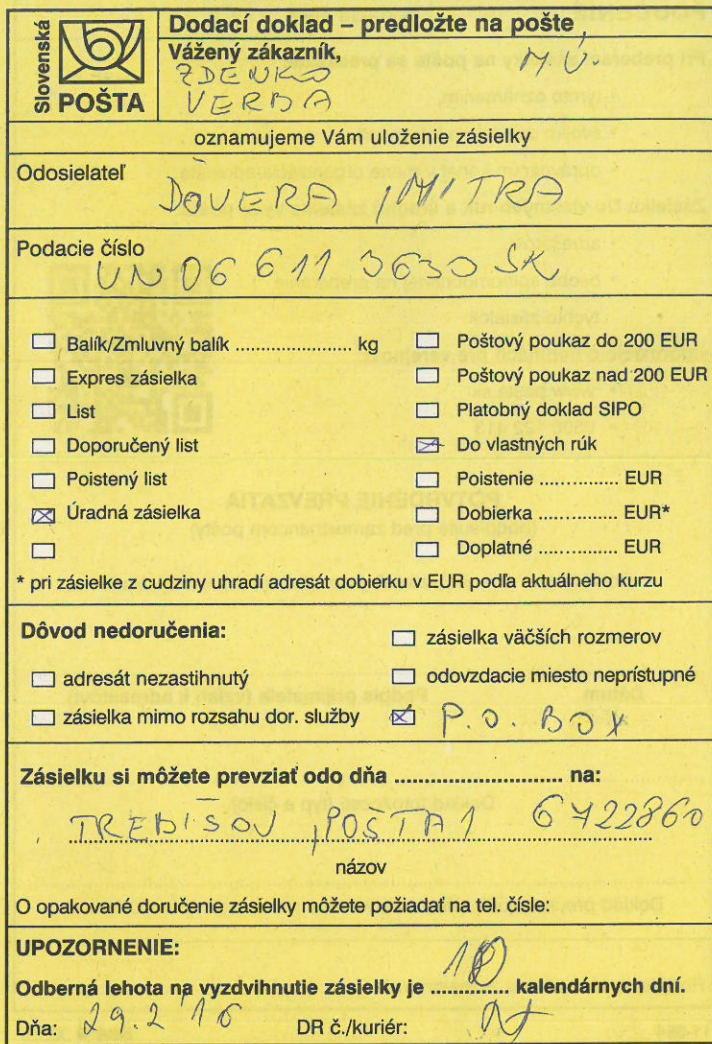 Slovenská
POŠTA
Dodací doklad – predložte na pošte
Vážený zákazník,
ZDENKO MÚ.
VERBA
oznamujeme Vám uloženie zásielky
Odosielateľ
DÔVERA , NITRA
Podacie číslo
UN 06 611 3630 SK
Balík/Zmluvný balík ...................... kg
Expres zásielka
List
Doporučený list
Poistený list
Úradná zásielka
Poštový poukaz do 200 EUR
Poštový poukaz nad 200 EUR
Platobný doklad SIPO
Do vlastných rúk
Poistenie ............... EUR
Dobierka ............... EUR*
Doplatné ............... EUR
* pri zásielke z cudziny uhradí adresát dobierku v EUR podľa aktuálneho kurzu
Dôvod nedoručenia:
zásielka väčších rozmerov
adresát nezastihnutý
odovzdacie miesto neprístupné
zásielka mimo rozsahu dor. služby
P.O. BOX
Zásielku si môžete prevziať odo dňa ............................ na:
TREBIŠOV , POŠTA 1 6722860
názov
O opakované doručenie zásielky môžete požiadať na tel. čísle:
UPOZORNENIE:
Odberná lehota na vyzdvihnutie zásielky je 10 kalendárnych dní.
Dňa: 29.2 '16 DR č./kuriér: